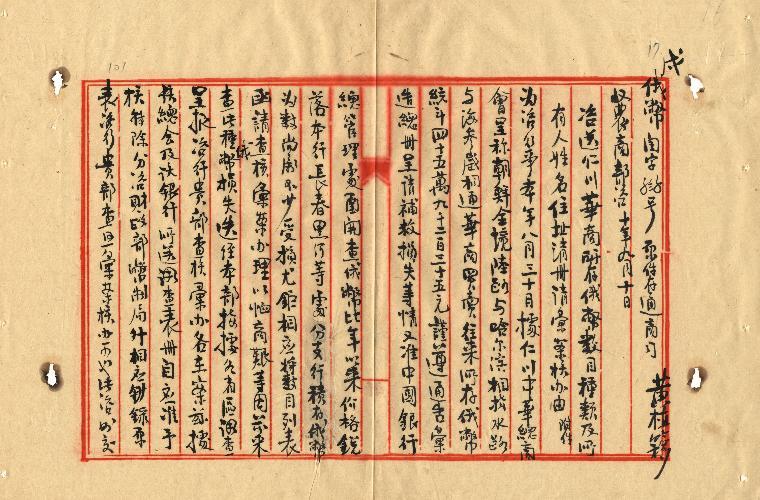 戌
17
俄幣 字 號 原件存通商司
收農商部咨 十年九月十日
咨送仁川華商所存俄幣數目種類及所
有人姓名住址清冊請彙案核辦由 附件
為咨行事本年八月三十日據仁川中華總商
會呈稱朝鮮全境陸路與哈爾濱相接水路
與海參崴相通華商買賣往來所存俄幣
統計四十五萬九千三百三十五元謹遵通告彙
造總冊呈請補救損失等情又准中國銀行
總管理處函開查俄幣比年以來價格銳
落本行長春黑河等處分支行積存俄幣
為數尚屬不少受損尤鉅相應將數目列表
函請查核彙案辦理以恤商艱等因前來
查此種俄幣損失迭經本部按據各商區調查
呈報咨行貴部查核彙辦各在案茲據
該總會及該銀行所送調查表冊自應准予
核轉除分咨財政部幣制局外相應鈔錄原
表咨行貴部查照彙案核辦可也此咨外交
黃桂
101